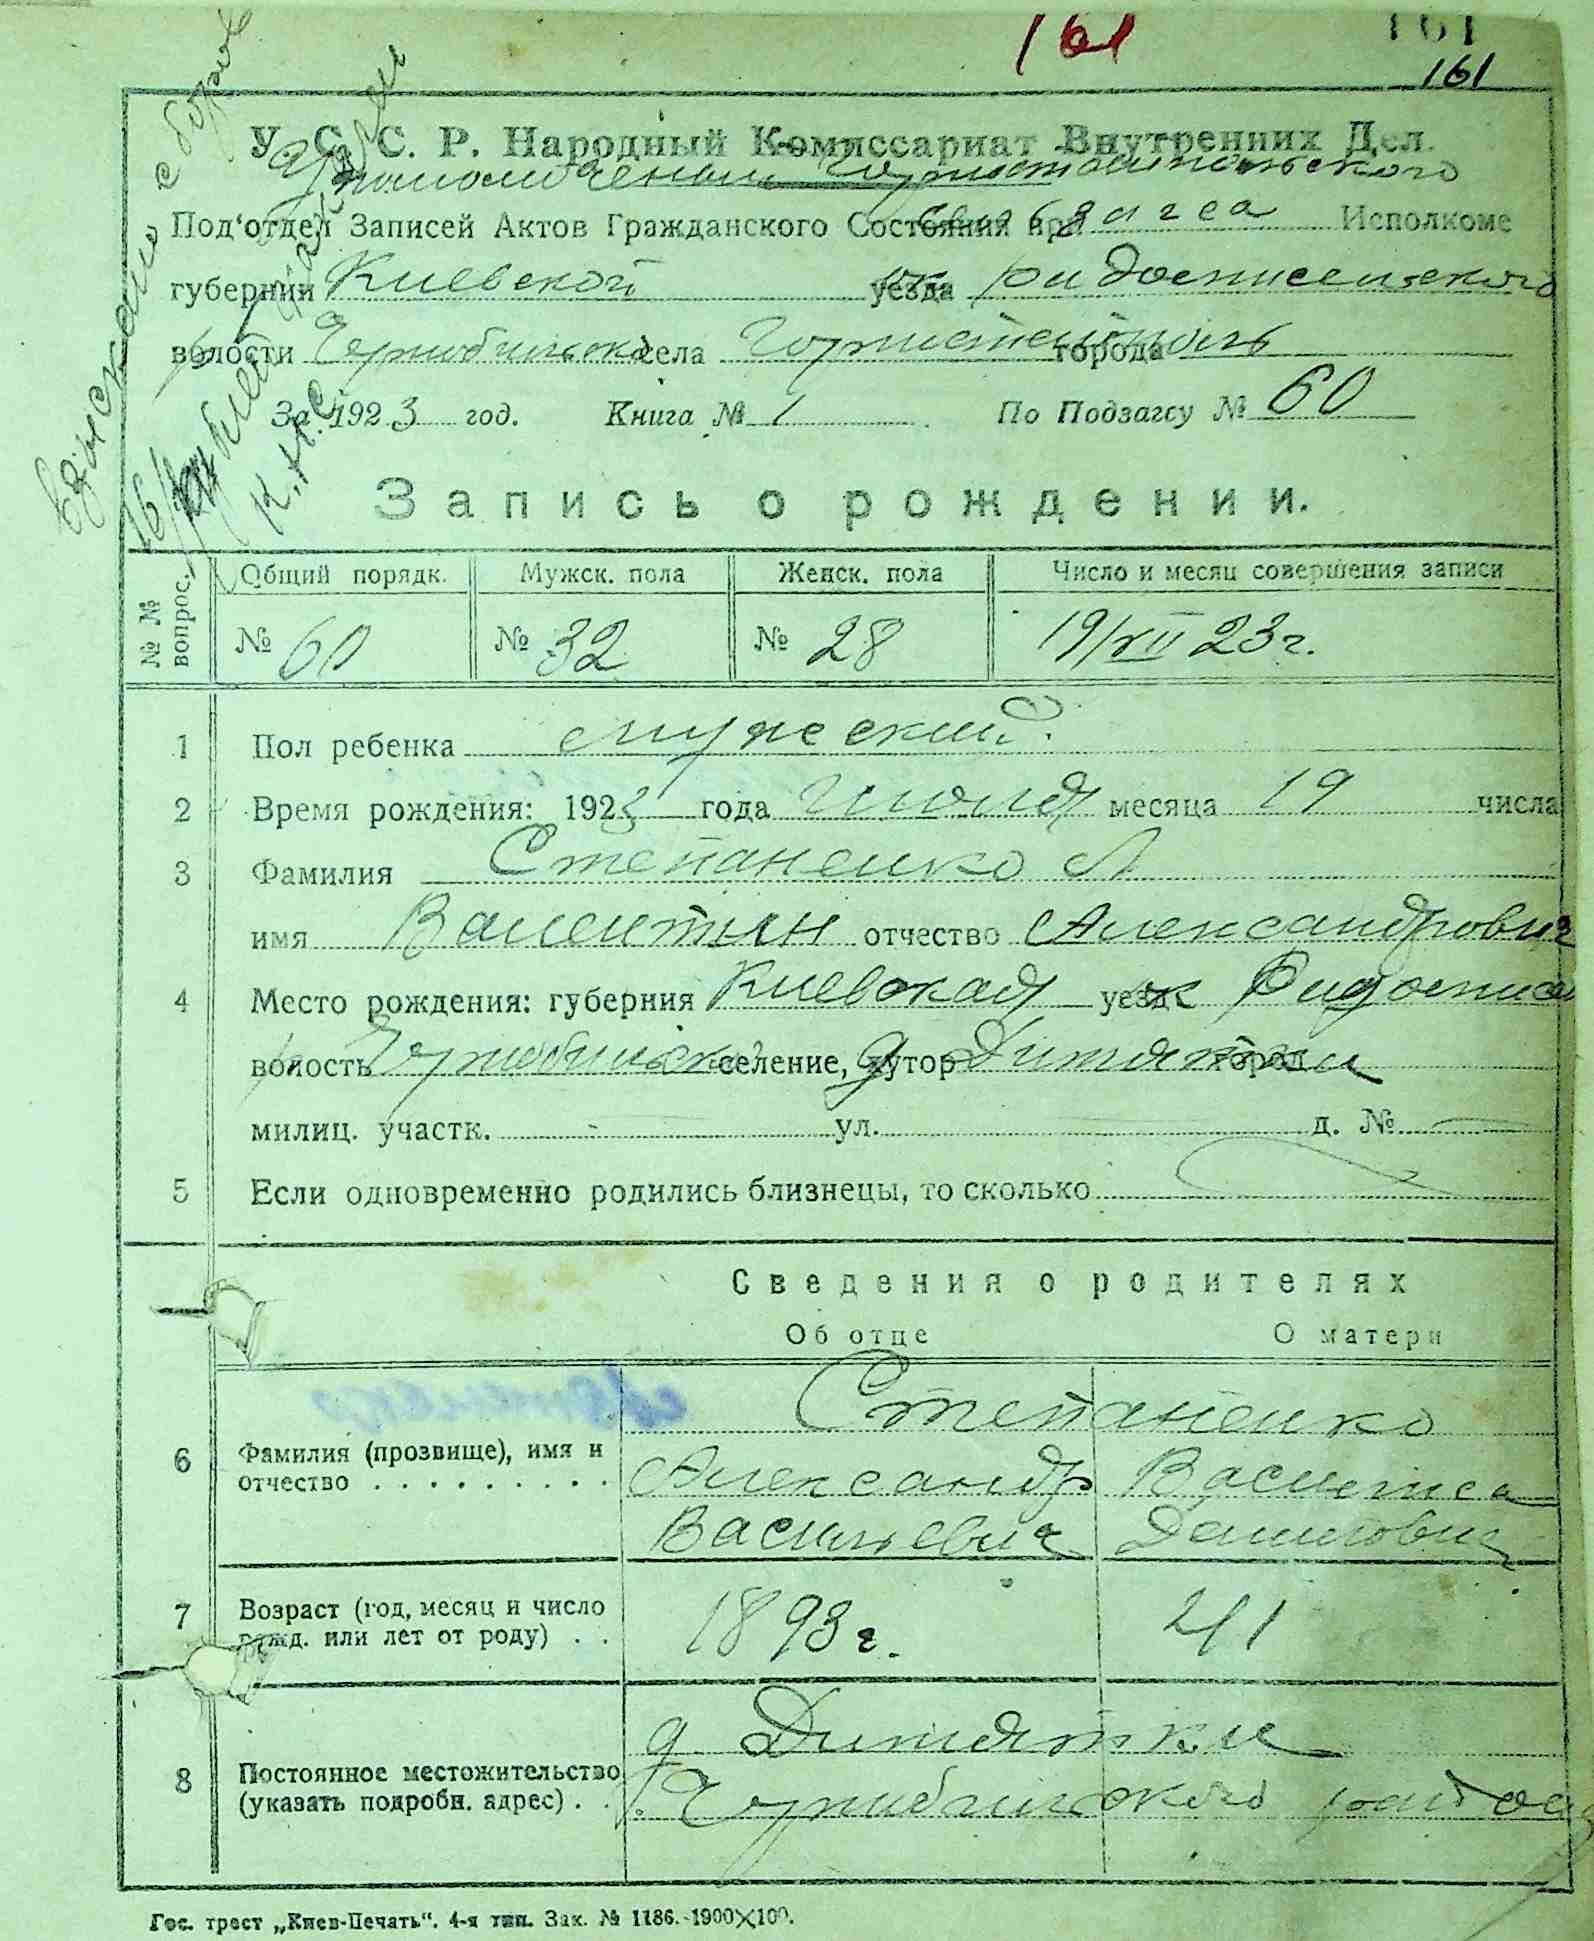 161 161
161
У. С. С. Р. Народный Комиссариат Внутренних Дел.
Под'отдел Записей Актов Гражданского Состояния при загса Исполкоме
губернии Киевской уезда
волости села Горностайполь города
За 1923 год. Книга № 1 По Подзагсу № 60
Запись о рождении.
№ № вопрос. Общий порядк. Мужск. пола Женск. пола Число и месяц совершения записи
№ 60 № 32 № 28 19/VII 23 г.
1 Пол ребенка мужеский.
2 Время рождения: 1923 года Июля месяца 19 числа
3 Фамилия Степаненко
имя Валентин отчество Александрович
4 Место рождения: губерния Киевская уезд
волость селение, хутор д Дитятки город
милиц. участк. ул. д. №
5 Если одновременно родились близнецы, то сколько
Сведения о родителях
Об отце О матери
Степаненко
6 Фамилия (прозвище), имя и отчество Александр Василиса
Васильевич Данилович
7 Возраст (год, месяц и число рожд. или лет от роду) 1893 г. 41
8 Постоянное местожительство (указать подробн. адрес) д. Дитятки
Гос. трест „Киев-Печать". 4-я тип. Зак. № 1186.-1900×100.